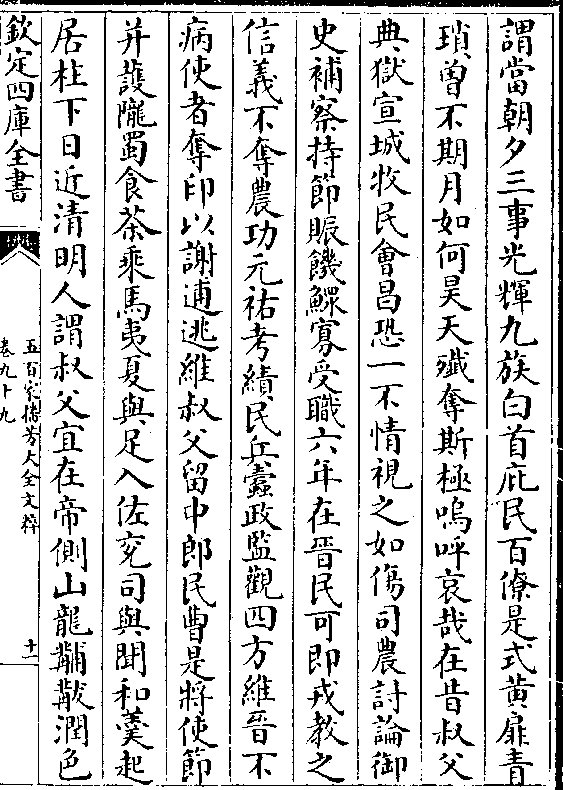 謂當朝夕三事光輝九族白首庇民百僚是式黄扉青
瑣曽不期月如何昊天殲奪斯極嗚呼哀哉在昔叔父
典獄宣城牧民會昌恐一不情視之如傷司農討論御
史補察持節賑饑鰥寡受職六年在晉民可即戎教之
信義不奪農功元祐考績民兵蠧政監觀四方維晉不
病使者奪印以謝逋逃維叔父留中郎民曹是將使節
并護隴蜀食茶乘馬夷夏與足入佐兖司與聞和羮起
居柱下日近清明人謂叔父宜在帝側山龍黼黻潤色
欽定四庫全書
五百家播芳大全文粹
卷九十九
十一